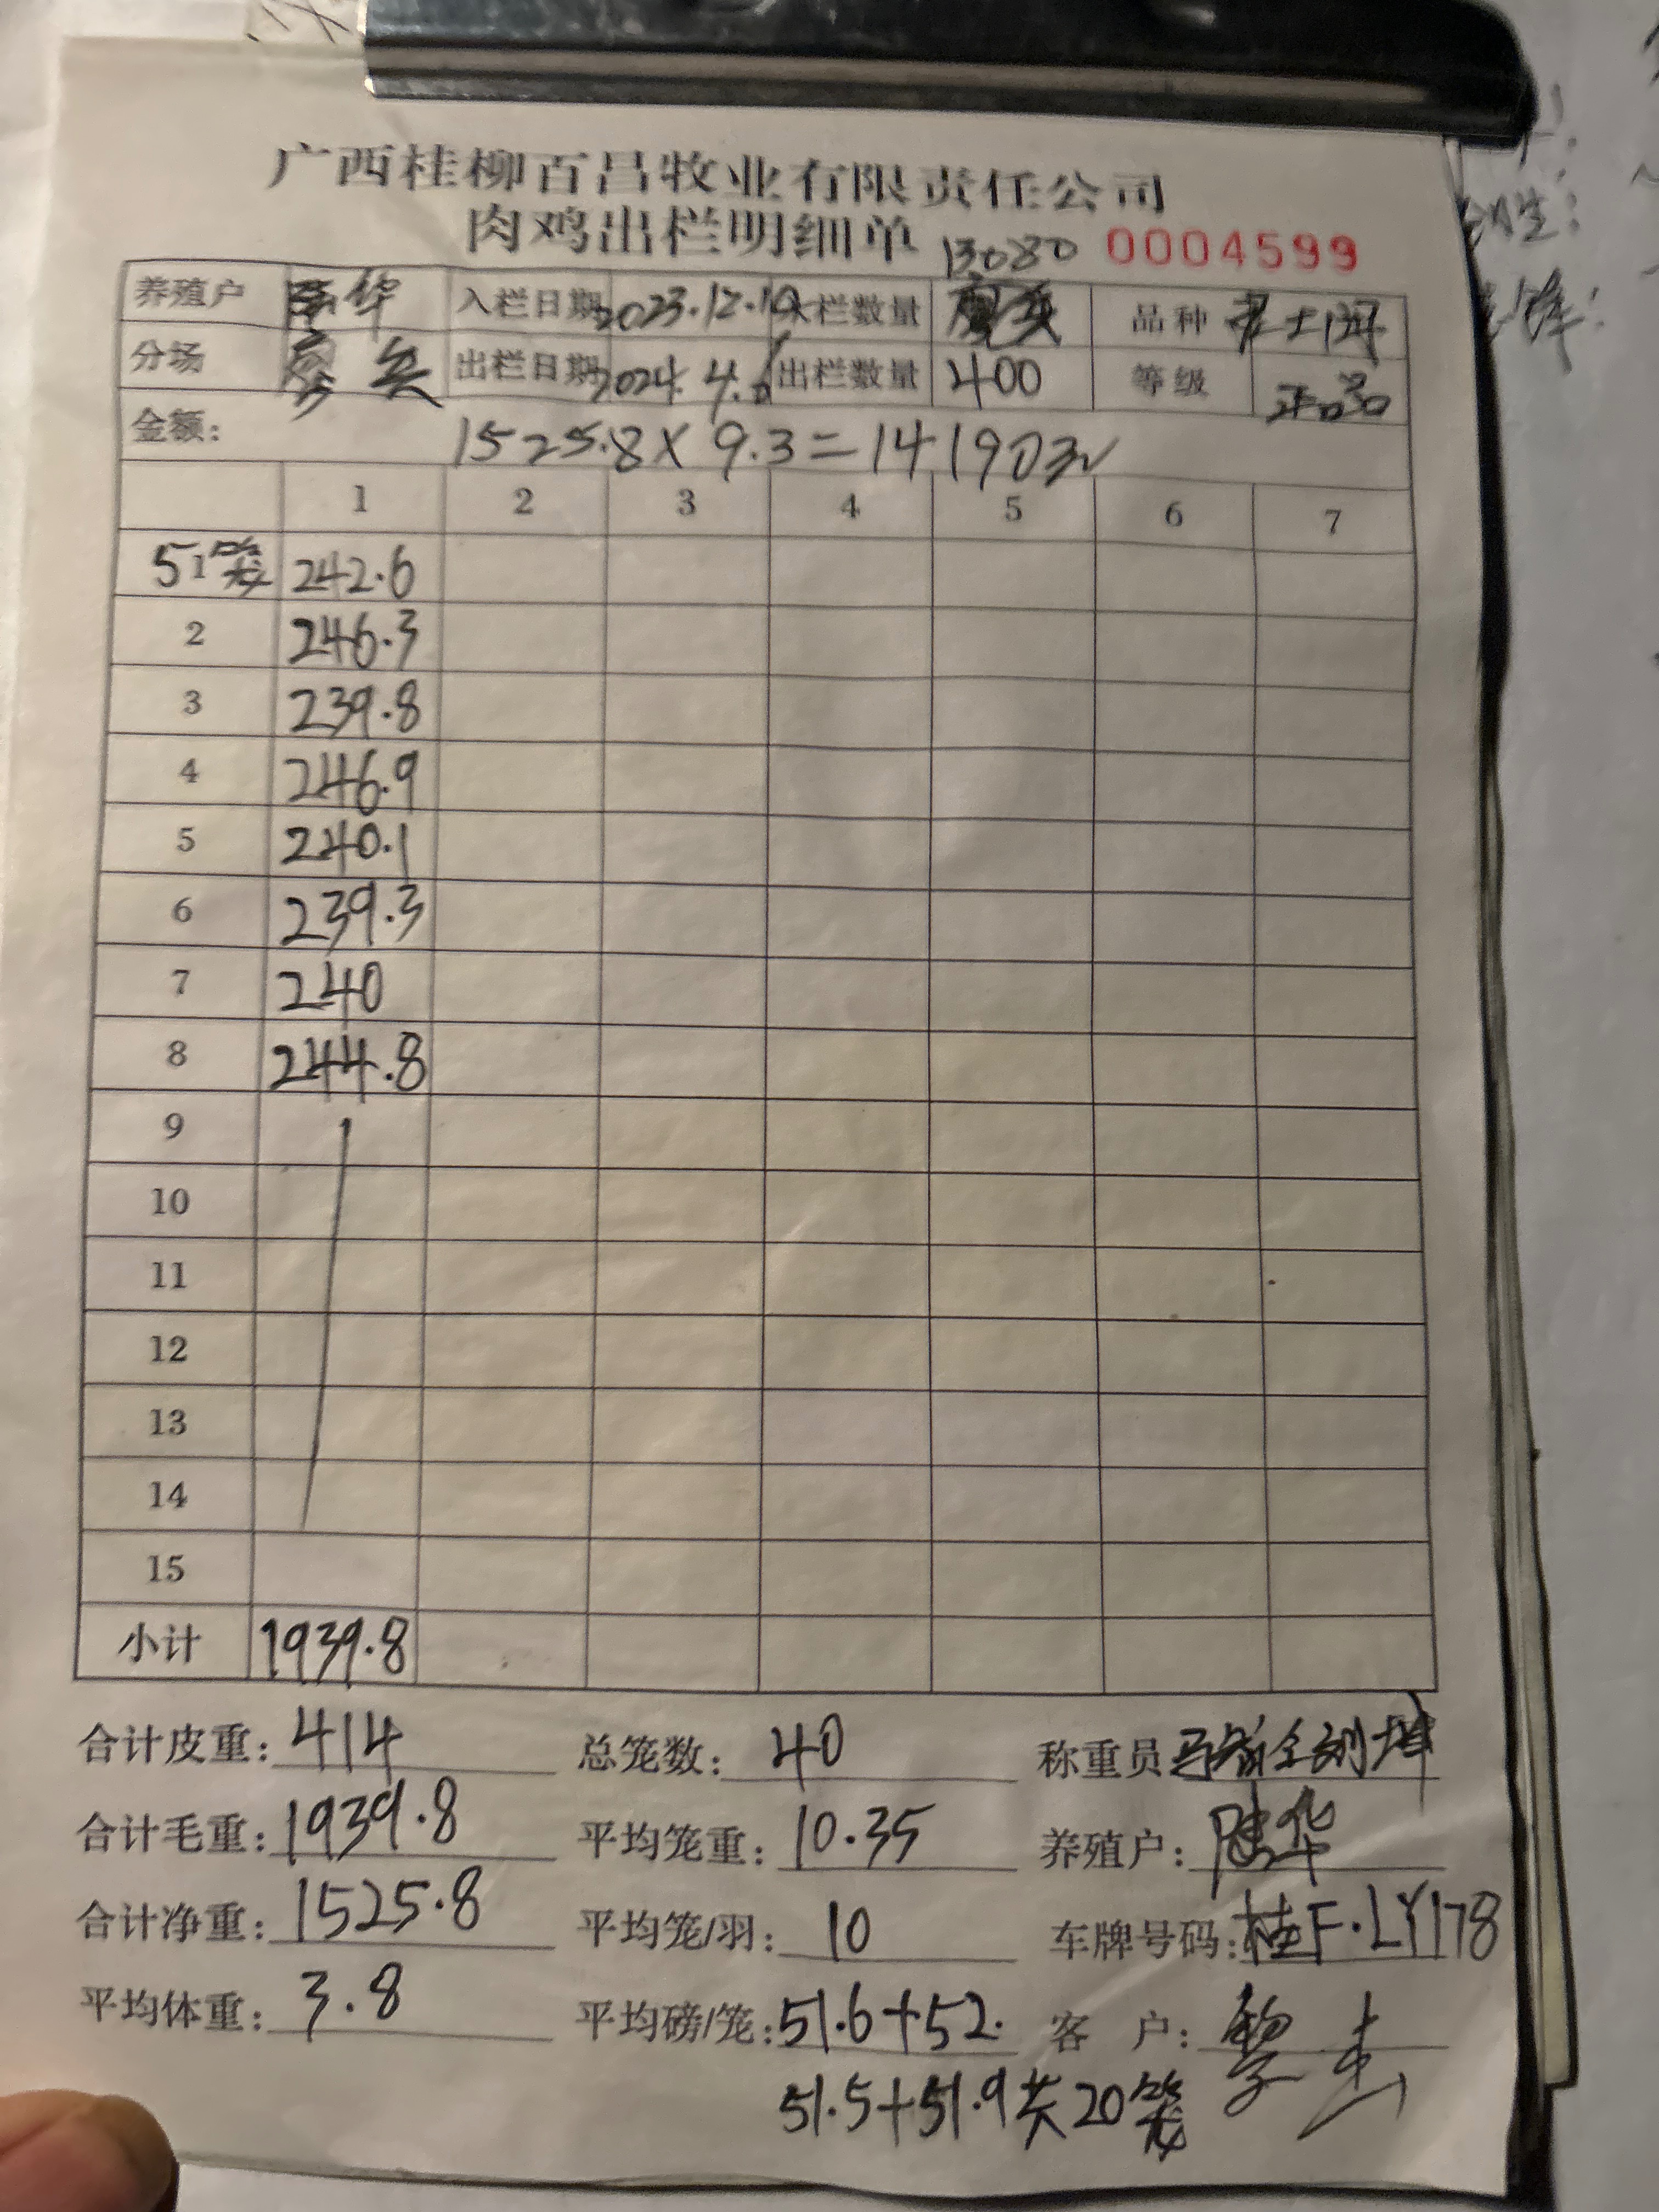 广西桂柳百昌牧业有限责任公司
肉鸡出栏明细单 13080 0004599
养殖户 华 入栏日期 2023.12.10 入栏数量 品种
分场 出栏日期 2024.4.6 出栏数量 400 等级 正品
金额: 1525.8×9.3=14190元
1 2 3 4 5 6 7
5 1笼 242.6
2 246.3
3 239.8
4 246.9
5 240.1
6 239.3
7 240
8 244.8
9
10
11
12
13
14
15
小计 1939.8
合计皮重: 414 总笼数: 40 称重员
合计毛重: 1939.8 平均笼重: 10.35 养殖户: 陆华
合计净重: 1525.8 平均笼/羽: 10 车牌号码: 桂F·LY178
平均体重: 3.8 平均磅/笼: 51.6+52. 客 户: 黎
51.5+51.9共20笼